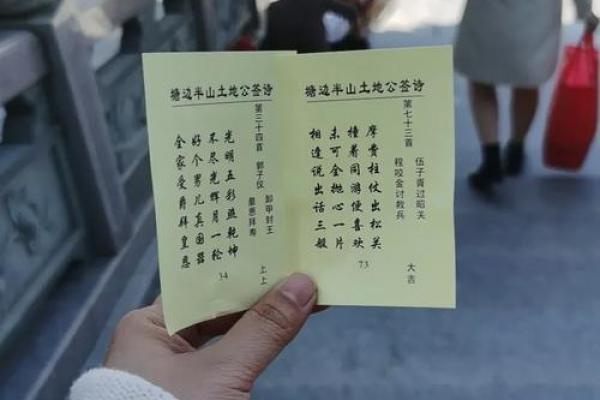 塘边半山土地公签诗
第三十四首 郭子仪
卸甲封王
拜寿
上上
光明五彩照乾坤
不尽光辉月一轮
好个男儿真国器
全家受爵拜皇恩
34
塘边半山土地公签诗
第七十三首
伍子胥过昭关
程咬金讨救兵
大吉
摩费柱仗出松关
撞着同游便喜欢
未可全抛心一片
相逢说出话三般
73